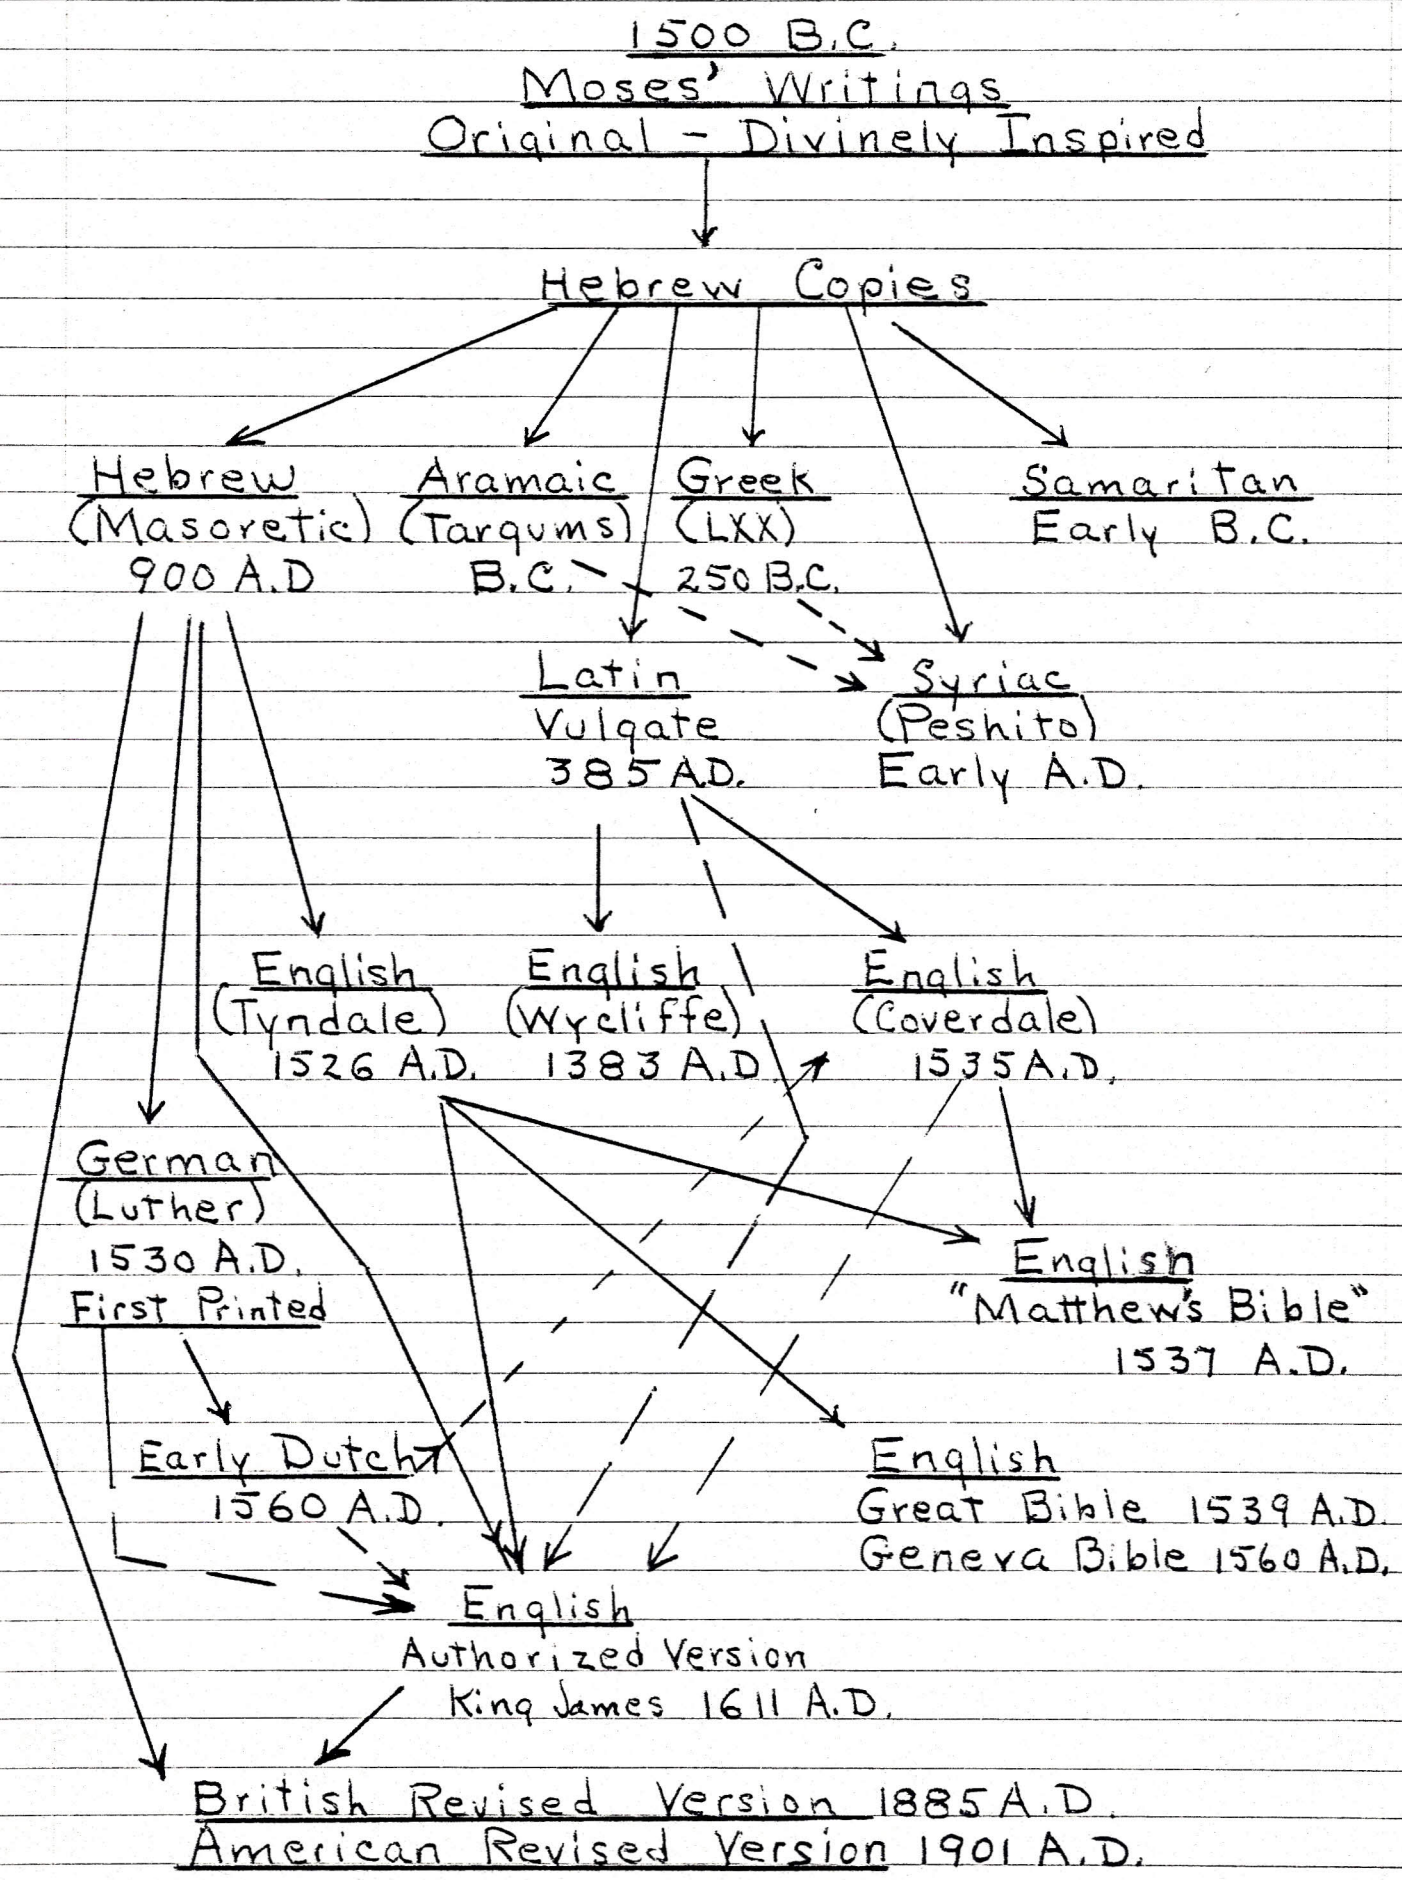 1500 B.C.
Moses' Writings
Original - Divinely Inspired
Hebrew Copies
Hebrew
(Masoretic)
900 A.D
Aramaic
(Targums)
B.C.
Greek
(LXX)
250 B.C.
Samaritan
Early B.C.
Latin
Vulgate
385 A.D.
Syriac
(Peshito)
Early A.D.
English
(Tyndale)
1526 A.D.
English
(Wycliffe)
1383 A.D.
English
(Coverdale)
1535 A.D.
German
(Luther)
1530 A.D.
First Printed
English
"Matthew's Bible"
1537 A.D.
Early Dutch
1560 A.D.
English
Great Bible 1539 A.D.
Geneva Bible 1560 A.D.
English
Authorized Version
King James 1611 A.D.
British Revised Version 1885 A.D.
American Revised Version 1901 A.D.